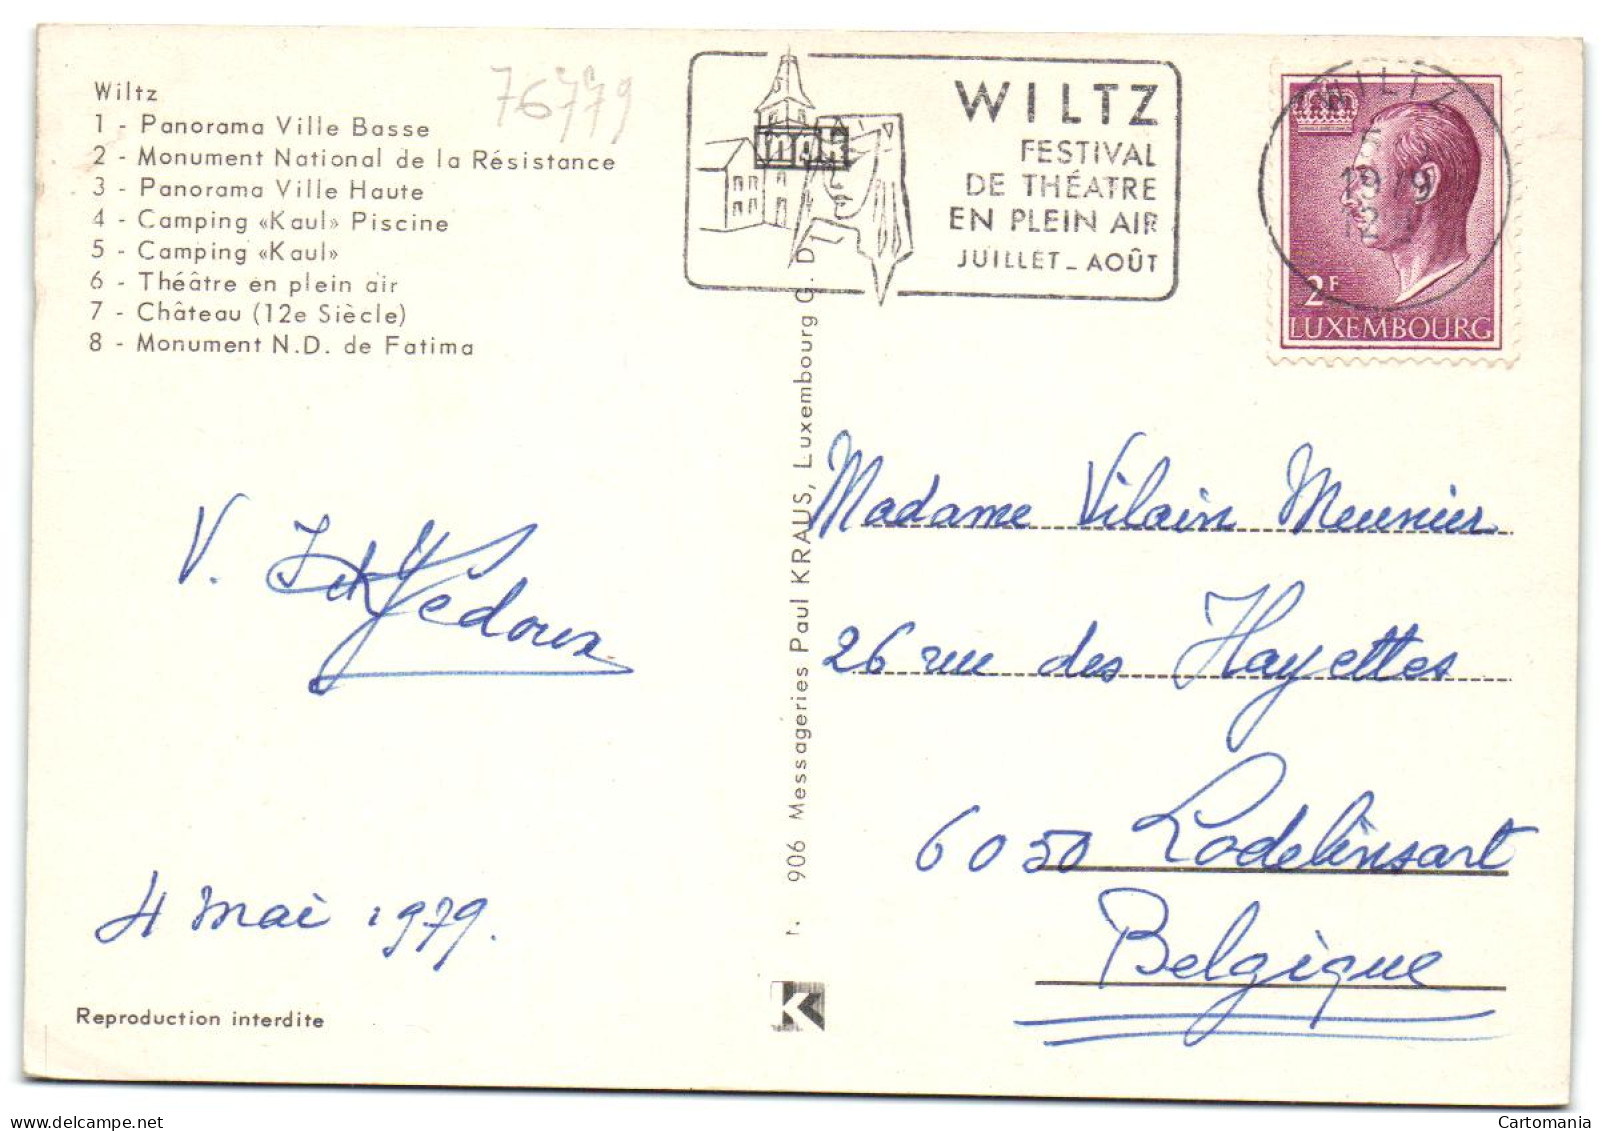 Wiltz
1 - Panorama Ville Basse
2 - Monument National de la Résistance
3 - Panorama Ville Haute
4 - Camping «Kaul» Piscine
5 - Camping «Kaul»
6 - Théâtre en plein air
7 - Château (12e Siècle)
8 - Monument N.D. de Fatima
76779
WILTZ
FESTIVAL
DE THÉATRE
EN PLEIN AIR
JUILLET - AOÛT
WILTZ
5
1979
12
2F
LUXEMBOURG
906 Messageries Paul KRAUS, Luxembourg G. D.
V.
Gedoux
4 mai 1979.
Madame Vilain Meunier
26 rue des Hayettes
6050 Lodelinsart
Belgique
Reproduction interdite
K
Cartomania
www.delcampe.net